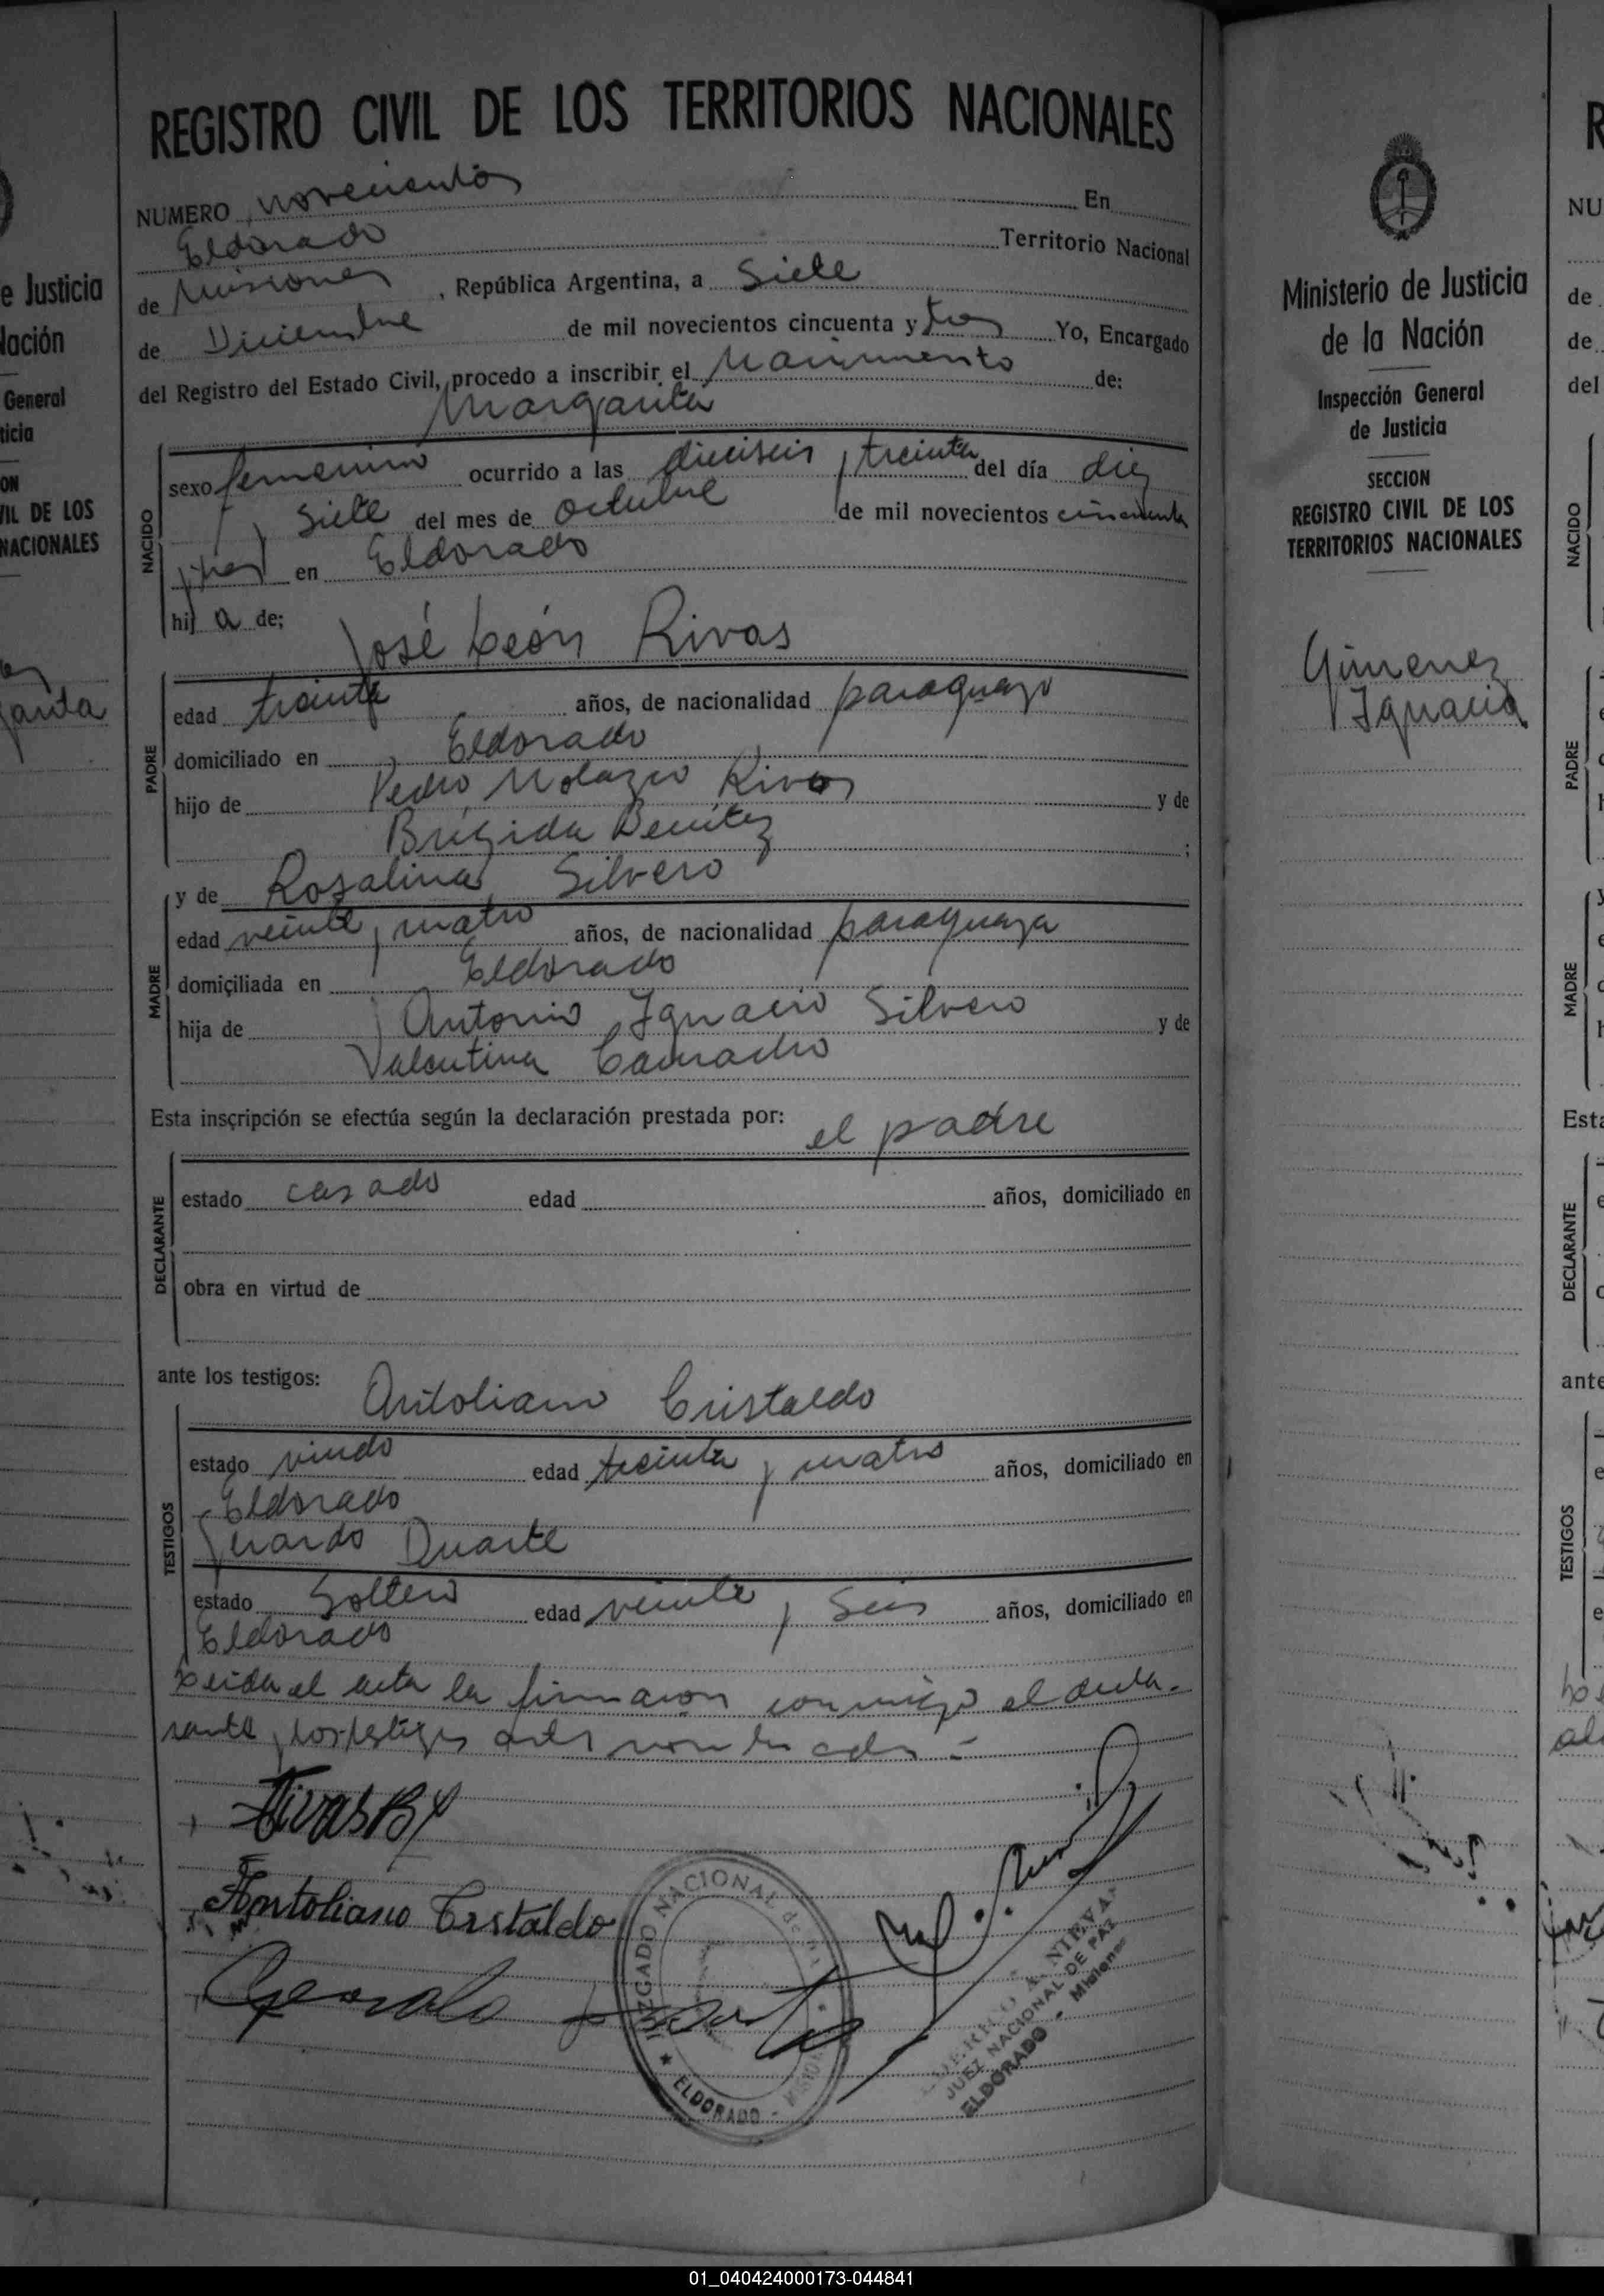 REGISTRO CIVIL DE LOS TERRITORIOS NACIONALES
NUMERO novecientos En
Eldorado Territorio Nacional
de Misiones, República Argentina, a Siete
de Diciembre de mil novecientos cincuenta y tres Yo, Encargado
del Registro del Estado Civil, procedo a inscribir el Nacimiento de:
Margarita
NACIDO
sexo femenino ocurrido a las dieciseis y treinta del día diez
y Siete del mes de Octubre de mil novecientos cincuenta
y tres en Eldorado
hij a de;
José León Rivas
PADRE
edad treinta años, de nacionalidad paraguayo
domiciliado en Eldorado
hijo de Pedro Rivas y de
Brígida Benítez;
y de Rosalina Silvero
MADRE
edad veinte y cuatro años, de nacionalidad paraguaya
domiciliada en Eldorado
hija de Antonio Ignacio Silvero y de
Valentina Camacho
Esta inscripción se efectúa según la declaración prestada por: el padre
DECLARANTE
estado casado edad años, domiciliado en
obra en virtud de
ante los testigos: Antoliano Cristaldo
TESTIGOS
estado viudo edad treinta y cuatro años, domiciliado en
Eldorado
Gerardo Duarte
estado Soltero edad veinte y Seis años, domiciliado en
Eldorado
Leida el acta la firmaron conmigo el decla-
rante y los testigos antes nombrados.-
Rivas B
Antoliano Cristaldo
JUZGADO NACIONAL de PAZ
ELDORADO - MISIONES
A. NIEVA
JUEZ NACIONAL DE PAZ
ELDORADO - Misiones
Ministerio de Justicia
de la Nación
Inspección General
de Justicia
SECCION
REGISTRO CIVIL DE LOS
TERRITORIOS NACIONALES
Gimenez
Ignacia
e Justicia
lación
General
ticia
ON
VIL DE LOS
NACIONALES
R
NU
de
de
del
NACIDO
PADRE
MADRE
Esta
DECLARANTE
ante
TESTIGOS
01_040424000173-044841